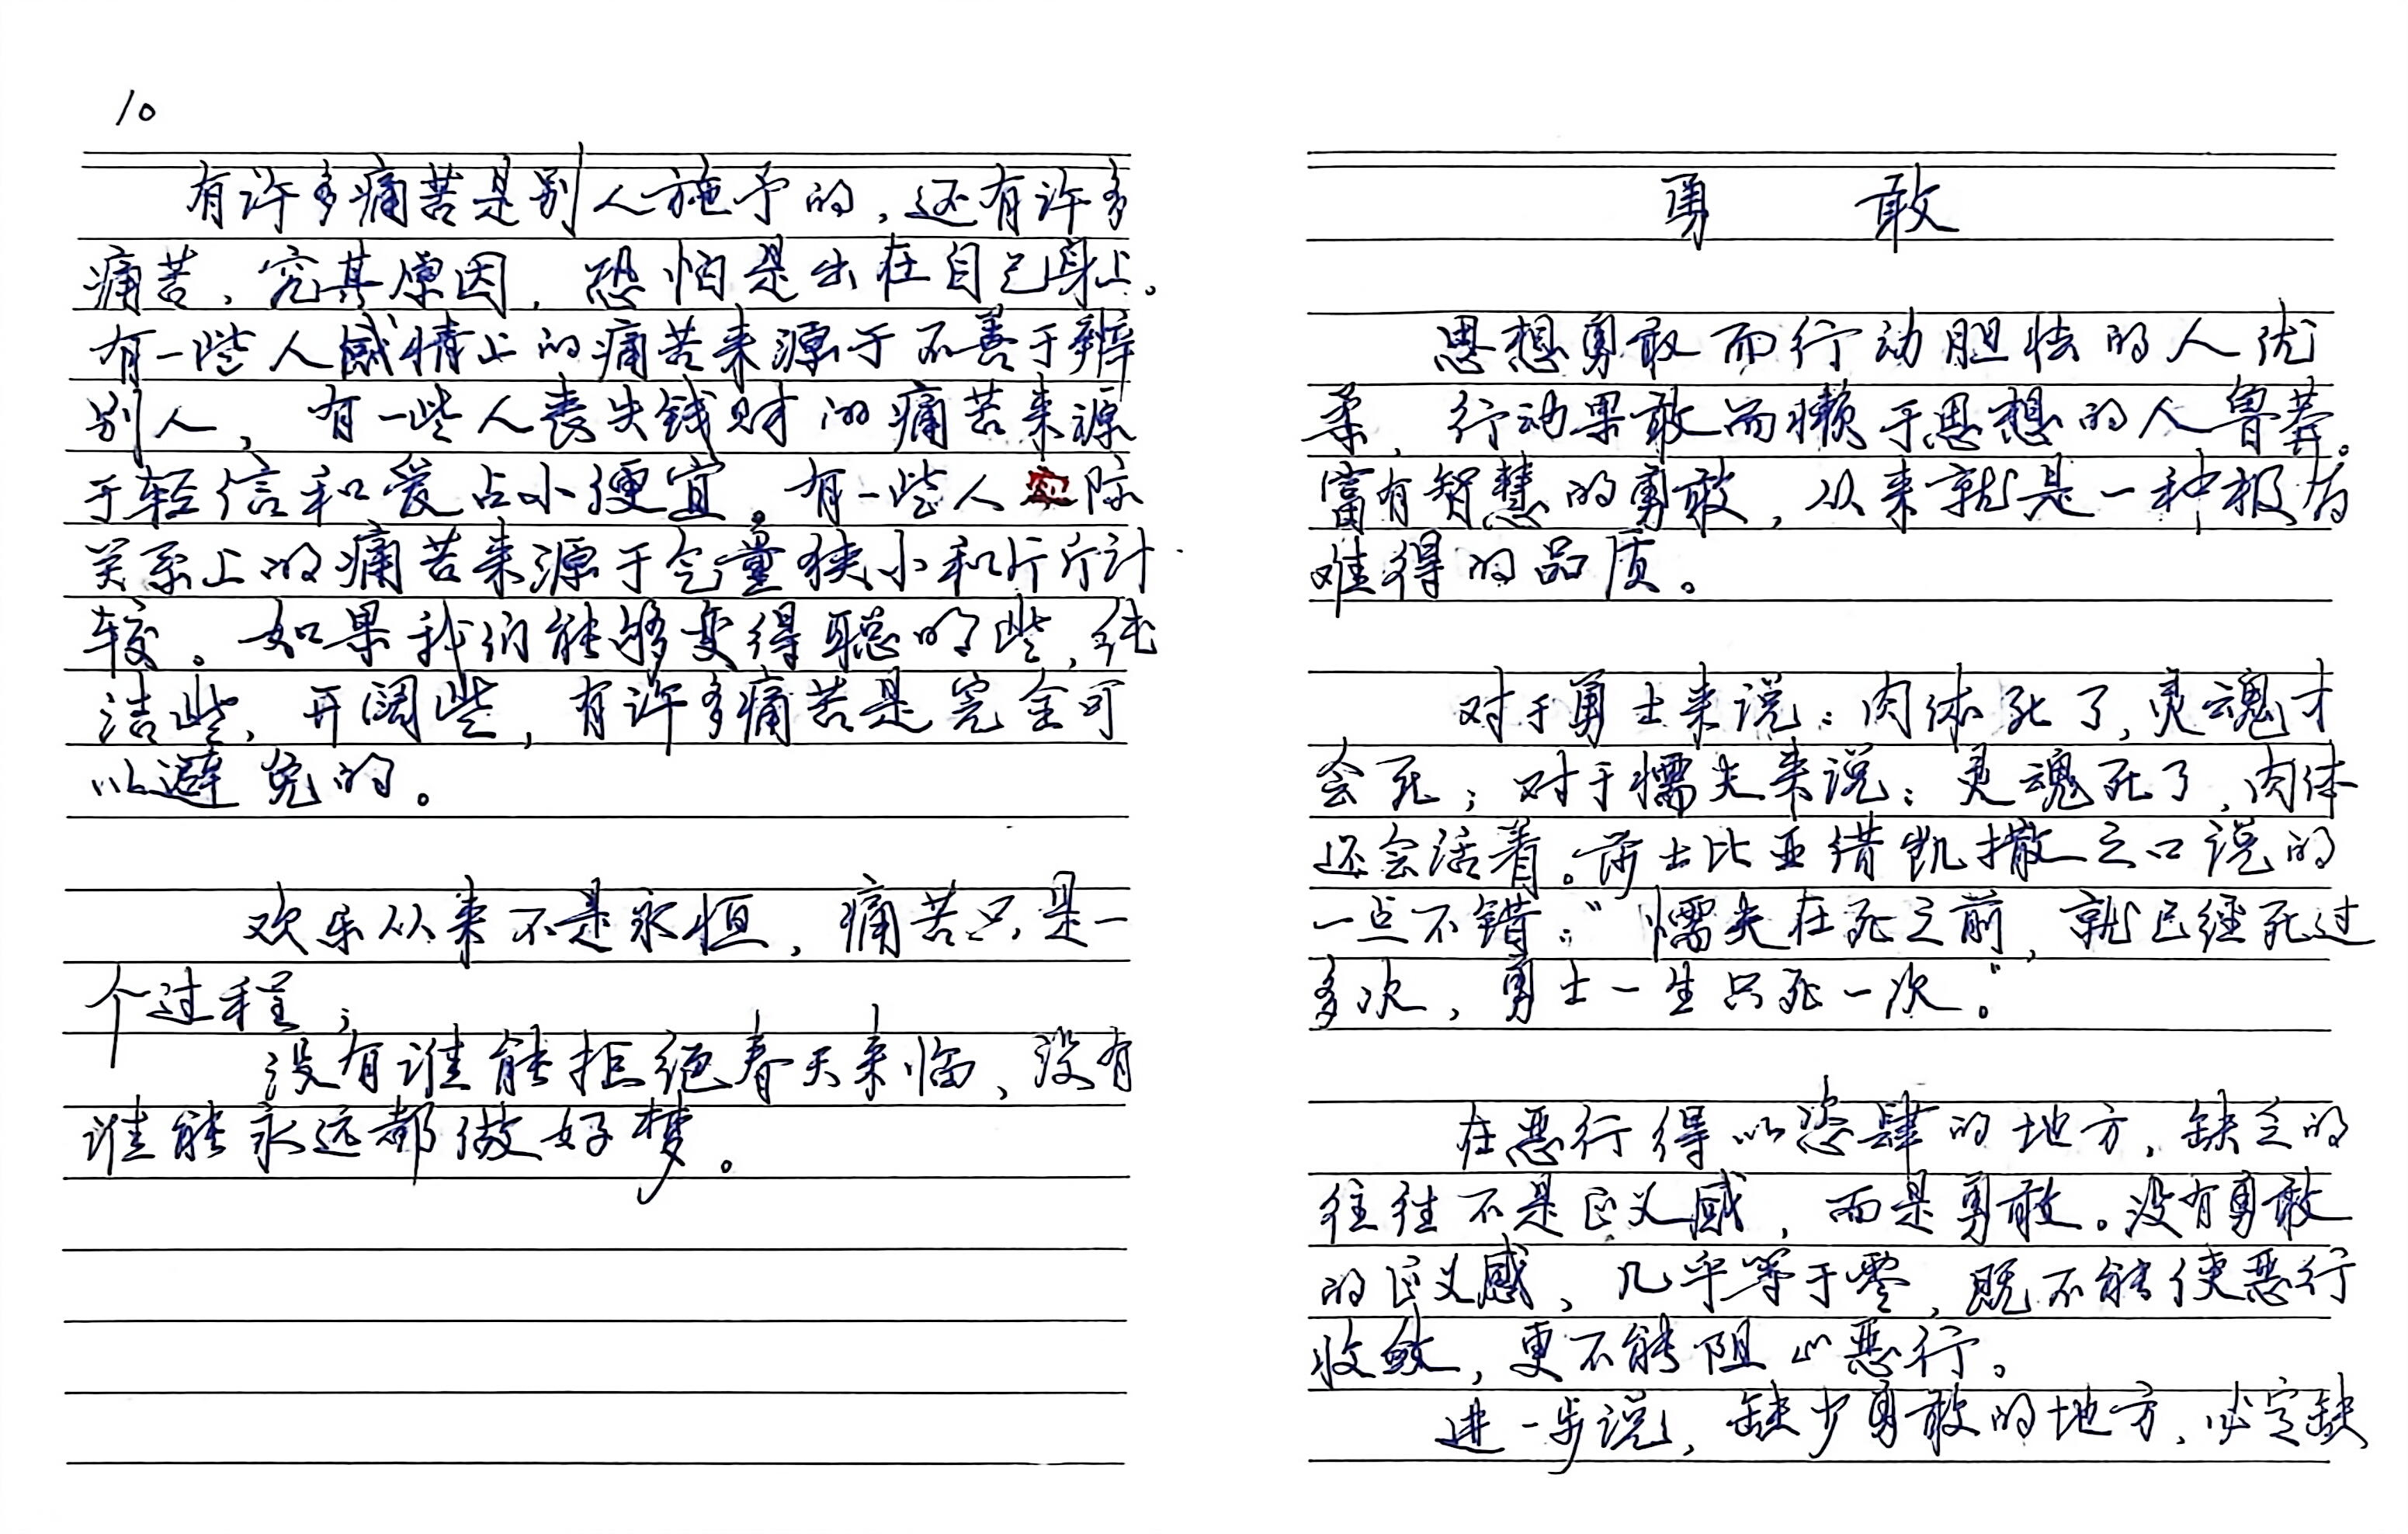 10
有许多痛苦是别人施予的，还有许多
痛苦，究其原因，恐怕是出在自己身上。
有一些人感情上的痛苦来源于不善于辨
别人，有一些人丧失钱财的痛苦来源
于轻信和爱占小便宜。有一些人际
关系上的痛苦来源于气量狭小和斤斤计
较。如果我们能够变得聪明些，纯
洁些，开阔些，有许多痛苦是完全可
以避免的。
欢乐从来不是永恒，痛苦只是一
个过程；
没有谁能拒绝春天来临，没有
谁能永远都做好梦。
勇 敢
思想勇敢而行动胆怯的人优
柔，行动果敢而懒于思想的人鲁莽。
富有智慧的勇敢，从来就是一种极为
难得的品质。
对于勇士来说：肉体死了，灵魂才
会死；对于懦夫来说：灵魂死了，肉体
还会活着。莎士比亚借凯撒之口说的
一点不错：“懦夫在死之前，就已经死过
多次，勇士一生只死一次。”
在恶行得以恣肆的地方，缺乏的
往往不是正义感，而是勇敢。没有勇敢
的正义感，几乎等于零，既不能使恶行
收敛，更不能阻止恶行。
进一步说，缺少勇敢的地方，必定缺